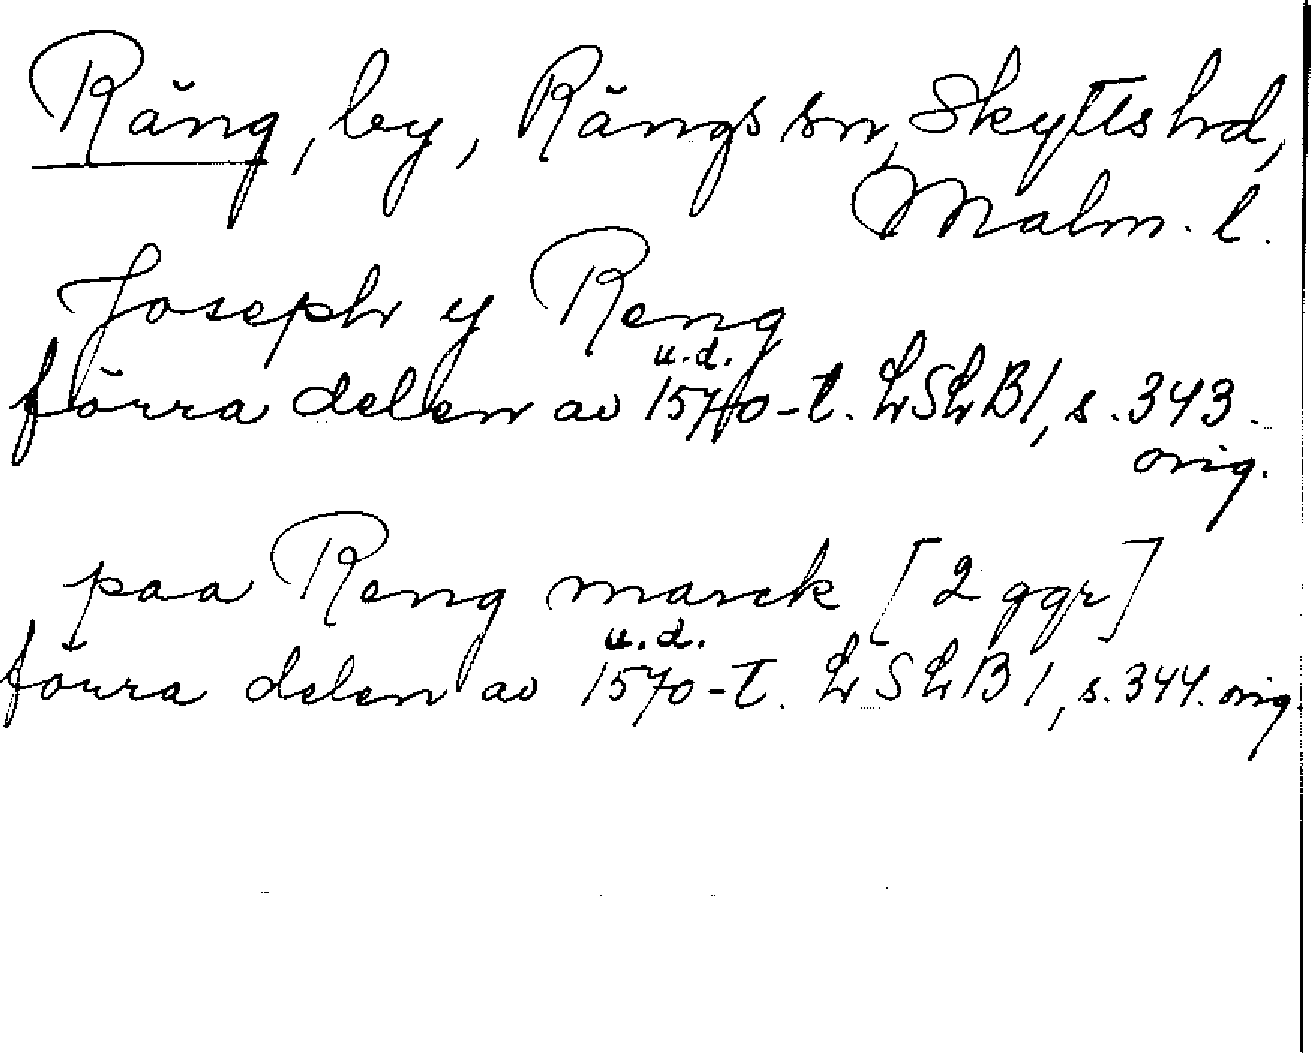 Räng, by, Rängs sn, Skytts hd,
Malm. l.
Joseph y Reng
u.d.
förra delen av 1570-t. LSLB1, s. 343.
orig.
paa Reng marck [2 ggr]
u.d.
förra delen av 1570-t. LSLB1, s. 344. orig.